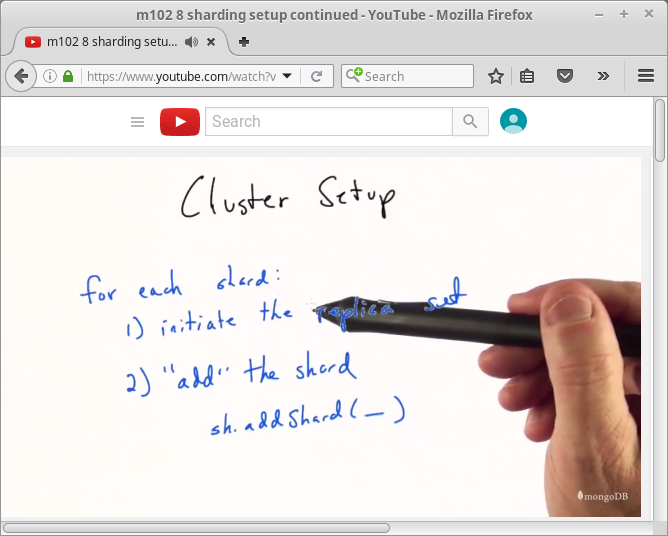 m102 8 sharding setup continued - YouTube - Mozilla Firefox
m102 8 sharding setu...
https://www.youtube.com/watch?v
Search
Search
Cluster Setup
for each shard:
1) initiate the replica set
2) "add" the shard
sh.addShard(_)
mongoDB